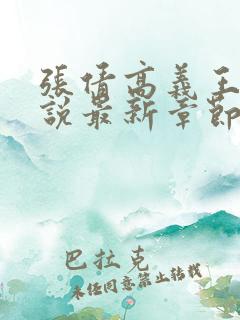 張倩高義王
說最新章節
巴拉克
未经同意禁止转载